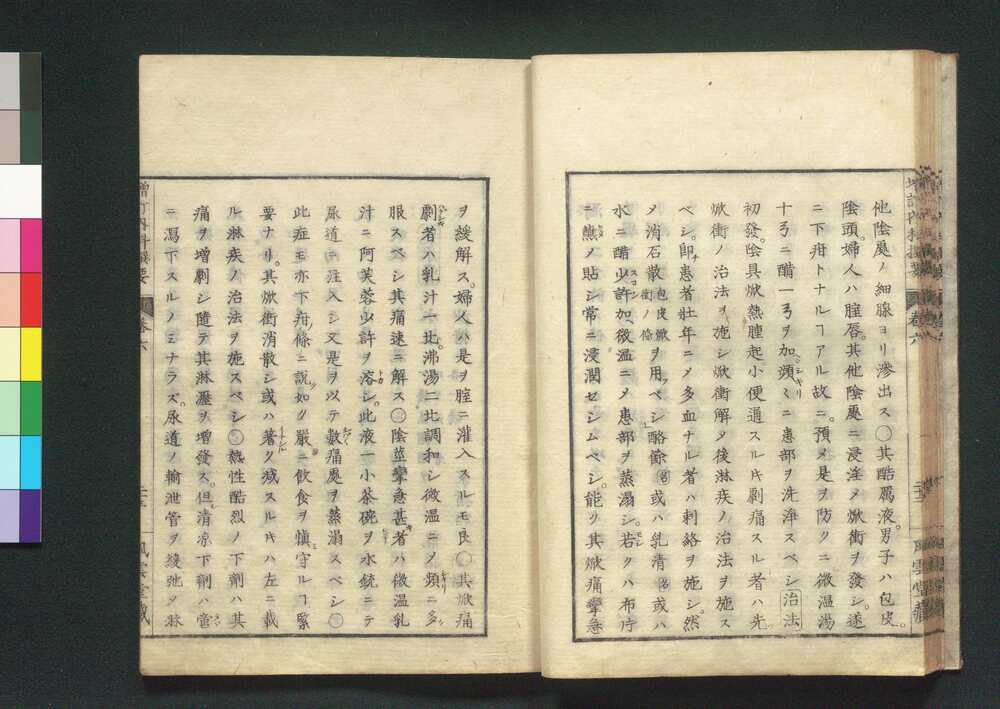 他陰処ノ細腺ヨリ滲出ス〇其酷厲液。男子ハ包皮。
陰頭。婦人ハ腟唇。其他陰処ニ浸淫メ焮衝ヲ發シ。遂
ニ下疳トナルヿアル故ニ。預メ是ヲ防クニ微温湯
十弖ニ醋一弖ヲ加。頻ミニ患部ヲ洗浄スベシ 治法
初發。陰具焮熱腫起小便通スルキ剧痛スル者ハ先
焮衝ノ治法ヲ施シ焮衝解タ後淋疾ノ治法ヲ施ス
ベシ。即患者壮年ニメ多血ナル者ハ刺絡ヲ施シ。然
メ消石散包皮焮衝ノ條ヲ用ベシ酪餘名或ハ乳清名或ハ
水ニ醋少許加。微温ニメ患部ヲ蒸溻シ。若クハ布片
ニ蘸メ貼シ常ニ浸潤セシムベシ。能ク其焮痛攣急
増訂内科撰要 巻六 風雲堂蔵
ヲ緩解ス。婦人ハ是ヲ腟ニ灌入スルモ良〇其焮痛
劇者ハ乳汁一匕。沸湯二匕調和シ微温ニメ頻ニ多
服スベシ其痛速ニ解ス〇陰莖攣急甚者ハ微温乳
汁ニ阿芙蓉少許ヲ溶シ。此液一小茶碗ヲ水銃ニテ
尿道ニ注入シ又是ヲ以テ數痛処ヲ蒸溻スベシ〇
此症モ亦下疳ノ條ニ説如ク嚴ニ飲食ヲ慎守ルヿ緊
要ナリ。其焮衝消散シ或ハ著ク減スルキハ左ニ載
ル淋疾ノ治法ヲ施スベシ〇熱性酷烈ノ下劑ハ其
痛ヲ増劇シ隨テ其淋瀝ヲ増發ス。但清凉下劑ハ啻
ニ瀉下スルノミナラズ。尿道ノ輸泄管ヲ緩弛メ淋
増訂内科撰要 巻六 風雲堂蔵